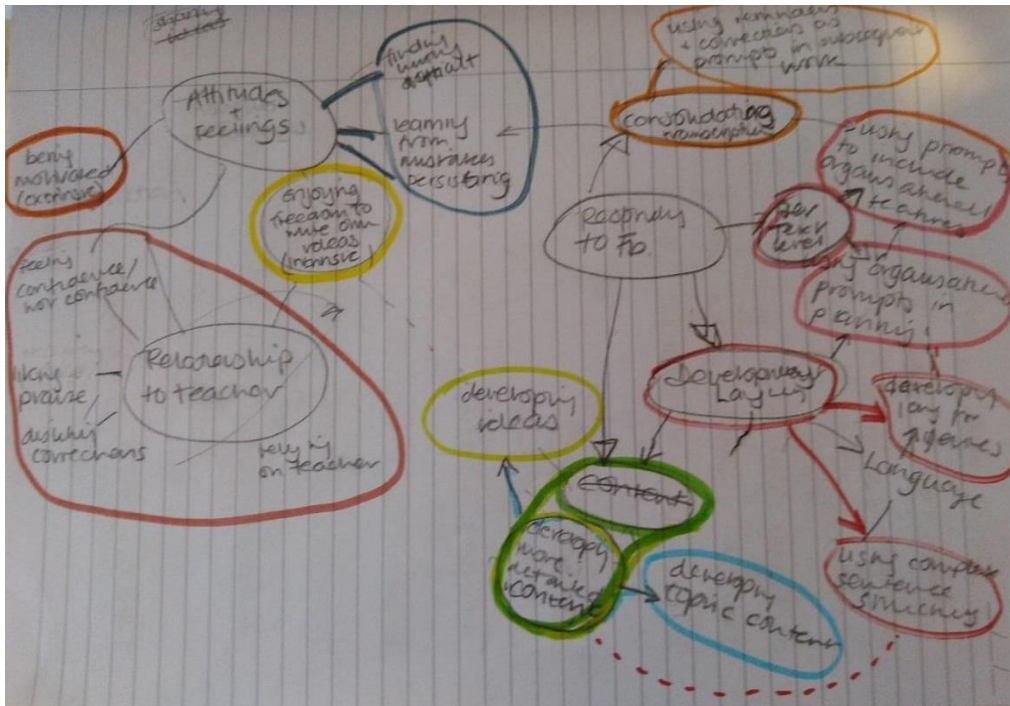 Attitudes
+
feelings
being
motivated
(extrinsic)
finding
writing
difficult
learning
from
mistakes
persisting
enjoying
freedom to
write own
ideas
(intrinsic)
feeling
confidence/
not confidence
Relationship
to teacher
liking
praise
disliking
corrections
relying
on teacher
using reminders
+ corrections as
prompts in subsequent
work
consolidating
transcription
Responding
to FB.
text
level
using prompts
to include
organisational
features
using organisational
prompts in
planning
Developing
developing
ideas
developing
lang for
Language
using complex
sentence
structures
content
develop
more
detailed
content
developing
topic content